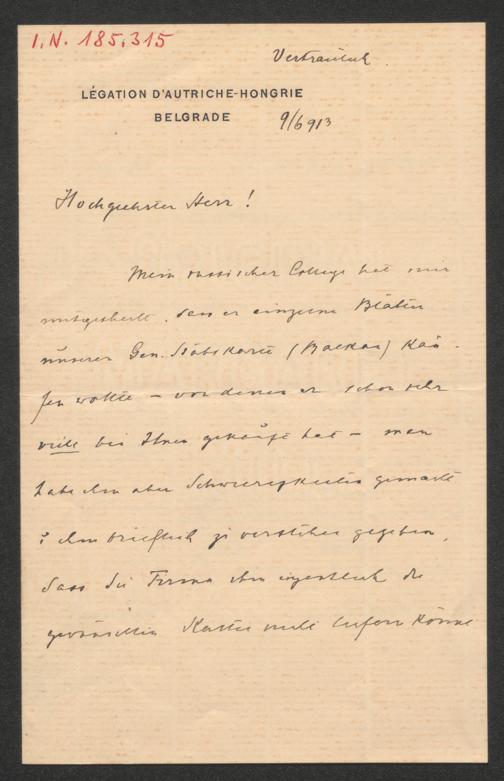 I.N. 185.315
Vertraulich.
LÉGATION D'AUTRICHE-HONGRIE
BELGRADE
9/6 913
Hochgeehrter Herr!
Mein russischer College hat mir
mitgetheilt, dass er einzelne Blätter
unserer Gen. Stabskarte (Balkan) kau-
fen wollte – von denen er schon sehr
viele bei Ihnen gekauft hat – man
habe ihm aber Schwierigkeiten gemacht
u ihm brieflich zu verstehen gegeben,
dass die Firma ihm eigentlich die
gewünschten Karten nicht liefern könne